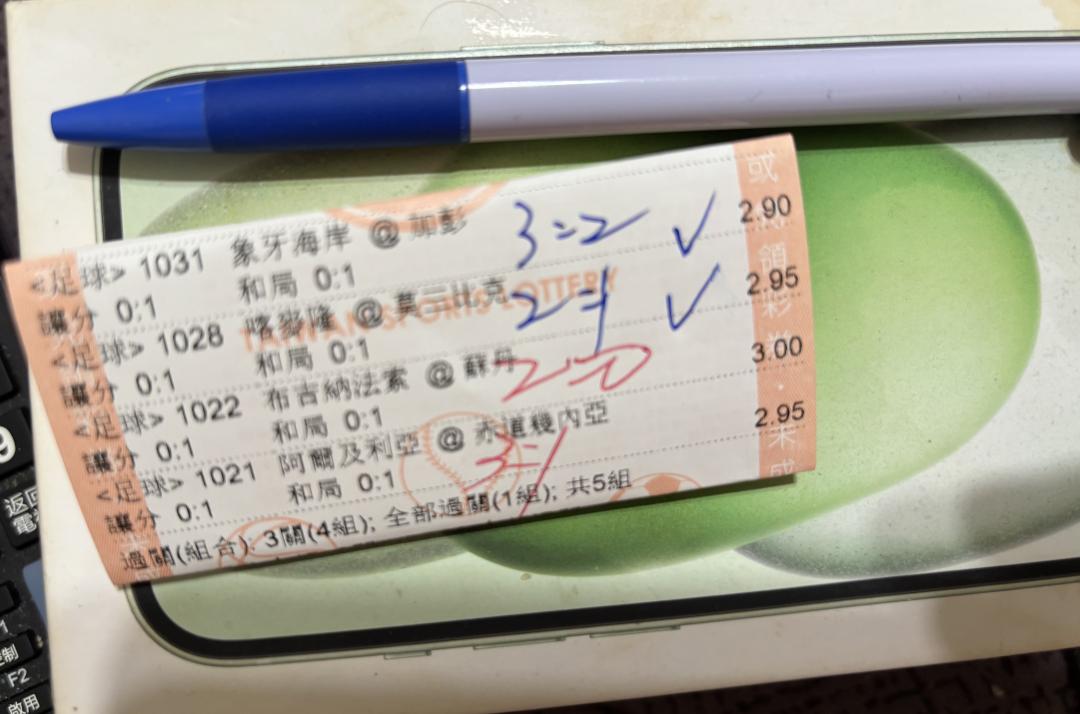 <足球> 1031 象牙海岸 @ 加彭 3=2 ✓ 2.90
讓分 0:1 和局 0:1
<足球> 1028 喀麥隆 @ 莫三比克 2=1 ✓ 2.95
讓分 0:1 和局 0:1
<足球> 1022 布吉納法索 @ 蘇丹 2=0 3.00
讓分 0:1 和局 0:1
<足球> 1021 阿爾及利亞 @ 赤道幾內亞 3=1 2.95
讓分 0:1 和局 0:1
過關(組合): 3關(4組); 全部過關(1組); 共5組
TAIWAN SPORTS LOTTERY
或
領
彩
券
未
成
9
返回
F2
啟用